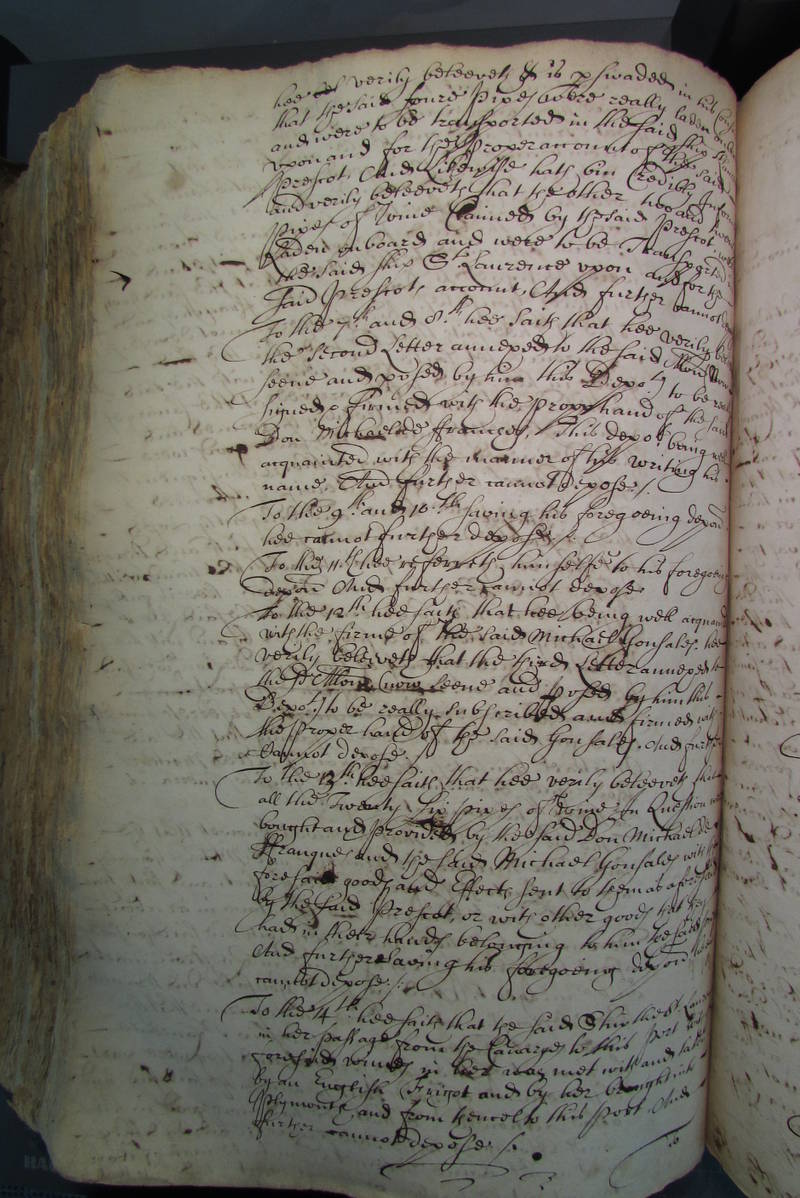 hee verily beleeveth & is pswaded in his
that the said foure Pipes were really laden
and were to be transported in the said ship
upon and for the proper accompt of the said
Prescot, And Likewise hath bin Credibly Infor
and verily beleeveth that the other
Pipes of Wine Claimed by the said Prescot were
Laden onboard and were to be Transported in
the said ship St Laurence upon and for the
said Prescots account, And further cannot
To the 7th and 8th hee saith that hee verily be
the second Letter annexed to the said
seene and pused by him this Depot to be real
signed & firmed with the proper hand of the said
Don Michael de ffranques, This depot being well
acquainted with the manner of his writing his
name, And further cannot depose /.
To the 9th and 10th saving his foregoeing depon
hee cannot further depose /.
To the 11th hee referreth himselfe to his foregoeing
depon And further cannot depose
To the 12th hee saith that hee being well acquain
with the firme of the said Michael Gonsales hee
verily beleeveth that the third Letter annexed to
the sd seene and pused by him this
Depot to be really subscribed and firmed with
the Proper hand of the said Gonsales, And further
cannot depose /.
To the 13th hee saith that hee verily beleeveth that
all the Twenty six pipes of Wine in Question were
bought and provided by the said Don Michael de
ffranques and the said Michael Gonsales with the
foresaid goods and Effects sent to them as aforesaid
by the said Prescot, or with other goods that they
had in their hands belonging to him the said
And further saving his foregoeing depon hee
cannot depose /.
To the 4th hee saith that the said Ship the St
in her passage from the Canaryes to this Port with
foresaid wines in her was met with and taken
by an English Frigot and by her brought into
Plymouth, and from thence to this Port, And
further cannot depose /.